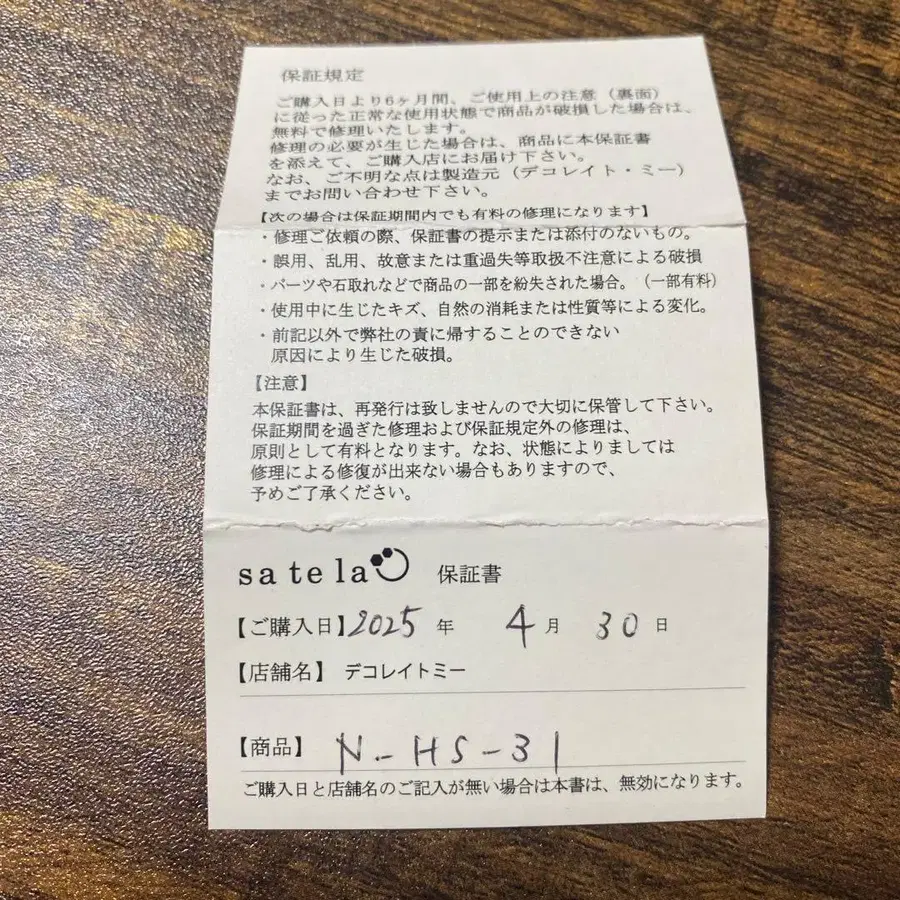 保証規定
ご購入日より6ヶ月間、ご使用上の注意（裏面）
に従った正常な使用状態で商品が破損した場合は、
無料で修理いたします。
修理の必要が生じた場合は、商品に本保証書
を添えて、ご購入店にお届け下さい。
なお、ご不明な点は製造元（デコレイト・ミー）
までお問い合わせ下さい。
【次の場合は保証期間内でも有料の修理になります】
・修理ご依頼の際、保証書の提示または添付のないもの。
・誤用、乱用、故意または重過失等取扱不注意による破損
・パーツや石取れなどで商品の一部を紛失された場合。（一部有料）
・使用中に生じたキズ、自然の消耗または性質等による変化。
・前記以外で弊社の責に帰することのできない
原因により生じた破損。
【注意】
本保証書は、再発行は致しませんので大切に保管して下さい。
保証期間を過ぎた修理および保証規定外の修理は、
原則として有料となります。なお、状態によりましては
修理による修復が出来ない場合もありますので、
予めご了承ください。
satela 保証書
【ご購入日】2025年 4月 30日
【店舗名】 デコレイトミー
【商品】 N-HS-31
ご購入日と店舗名のご記入が無い場合は本書は、無効になります。